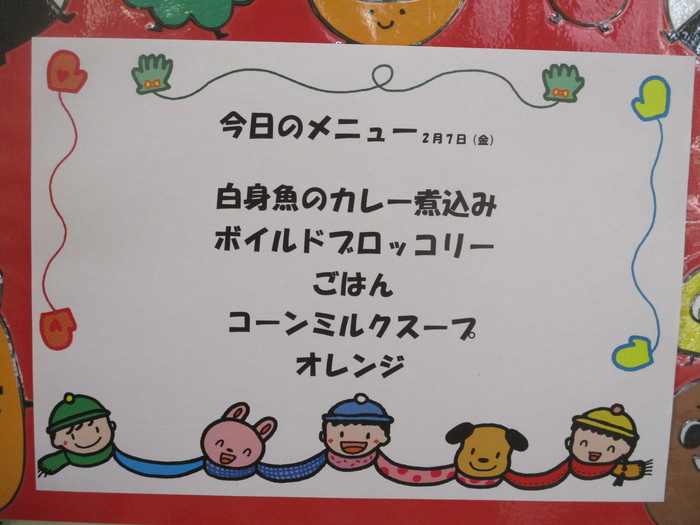 今日のメニュー 2月7日(金)
白身魚のカレー煮込み
ボイルドブロッコリー
ごはん
コーンミルクスープ
オレンジ